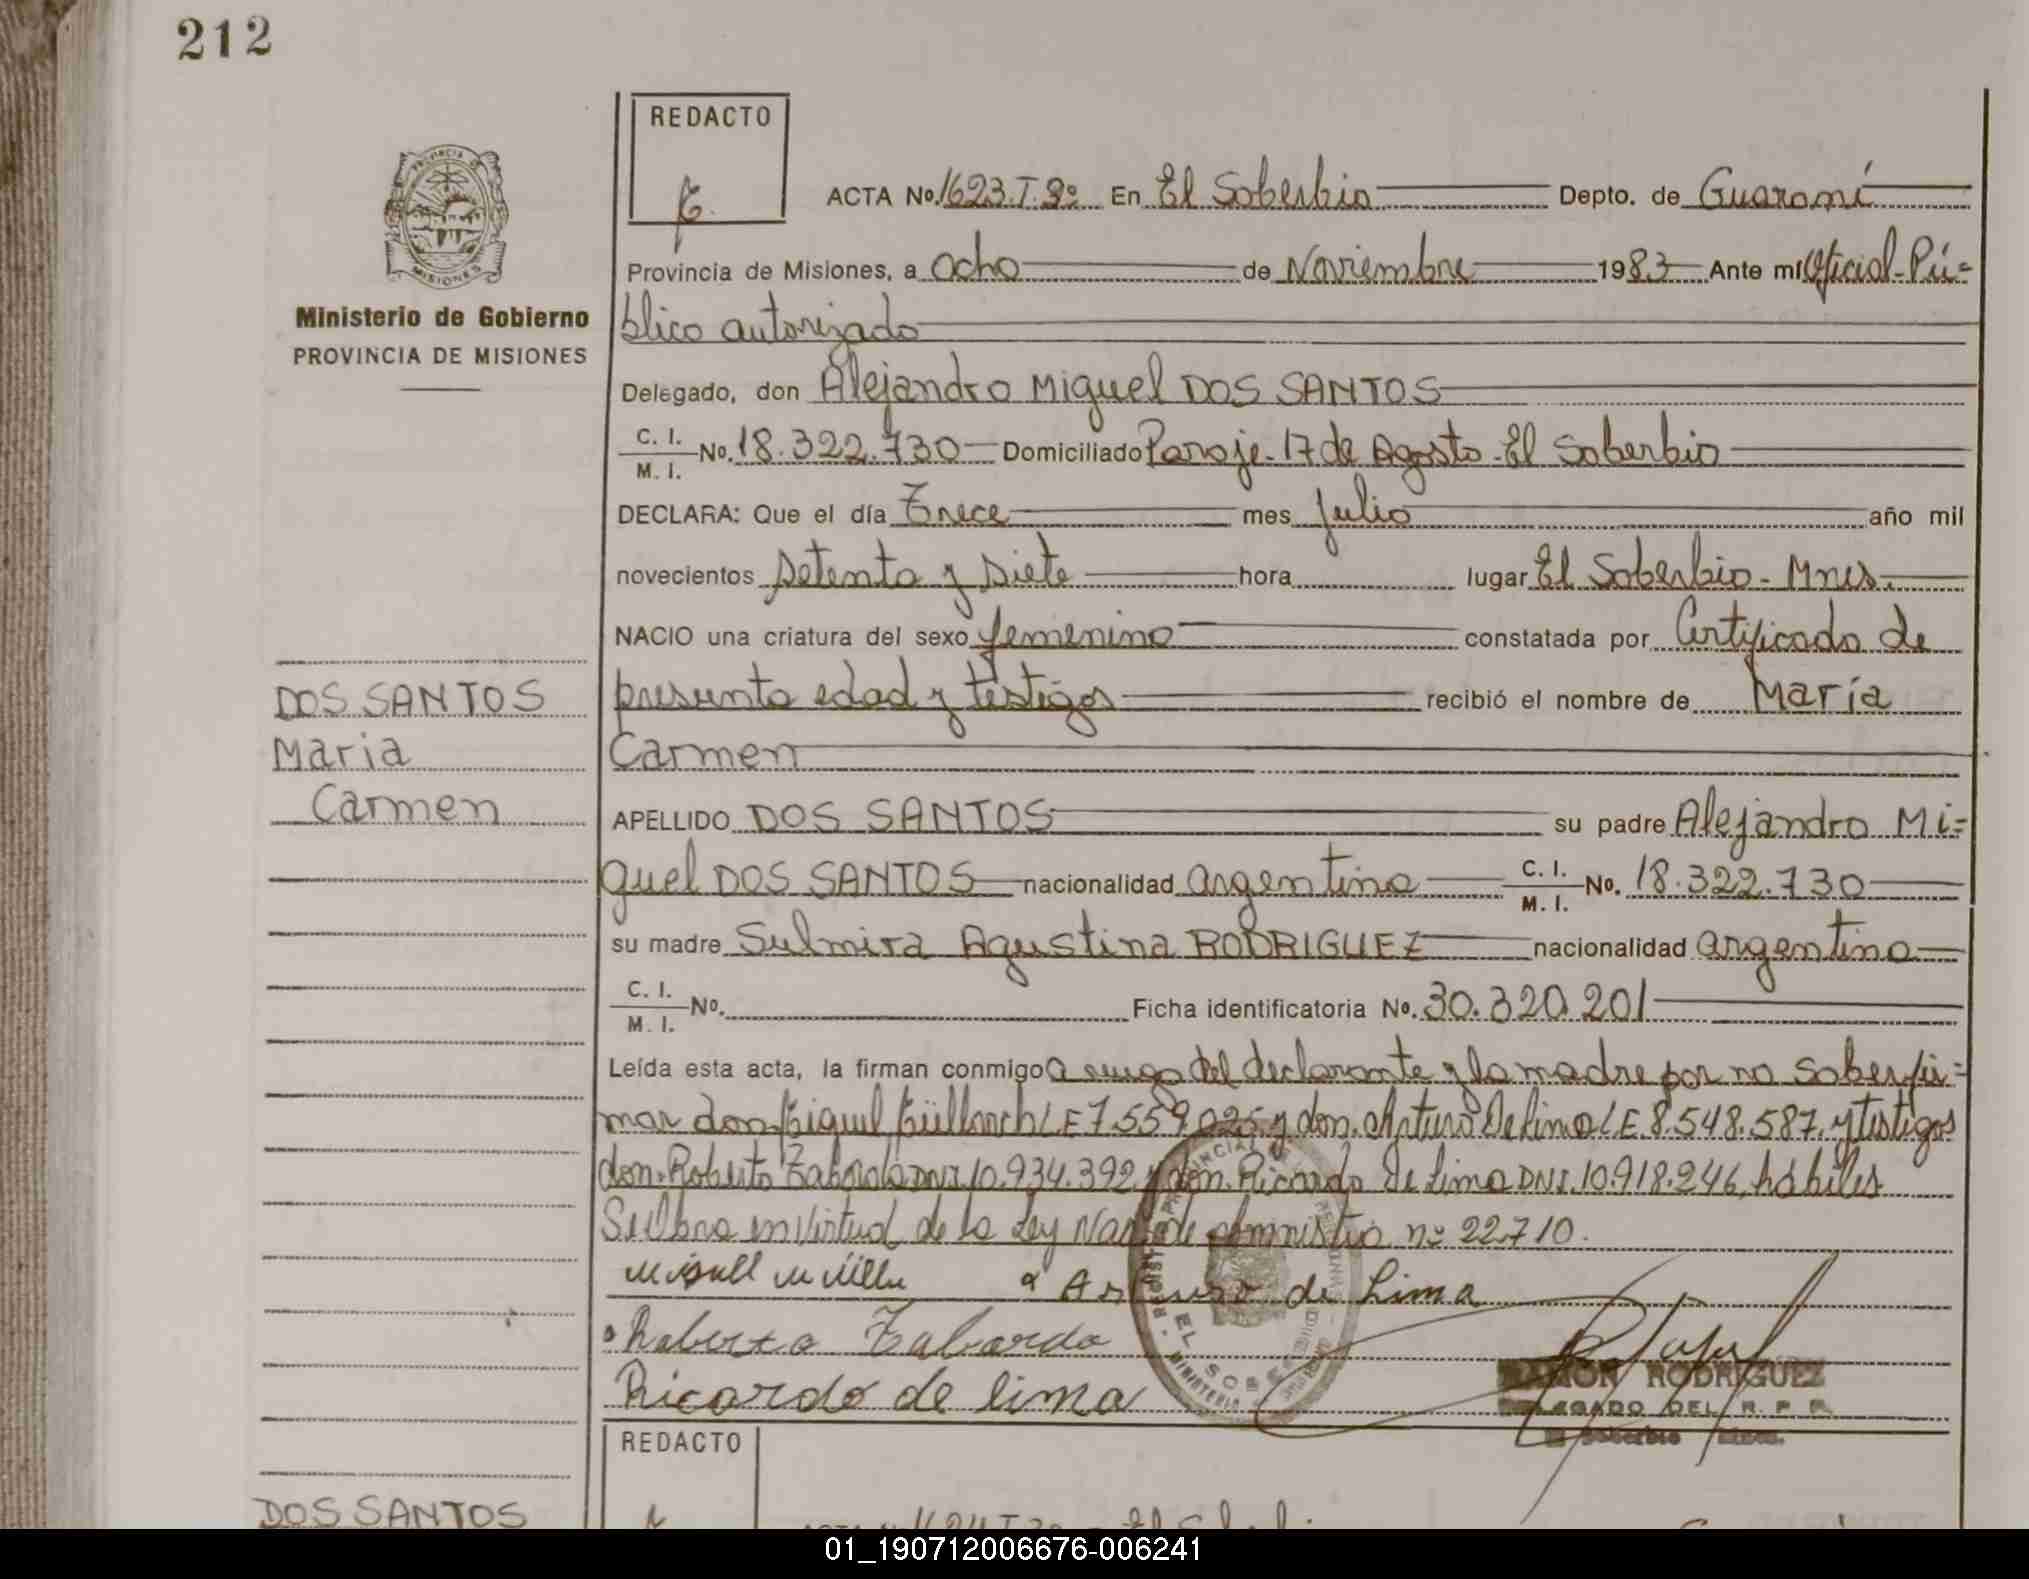 212
REDACTO
ACTA No. 1623. T. 9º En El Soberbio Depto. de Guaraní
Provincia de Misiones, a ocho de Noviembre 1983 Ante mi Oficial Pú=
blico autorizado
Ministerio de Gobierno
PROVINCIA DE MISIONES
Delegado, don Alejandro Miguel DOS SANTOS
C. I.
M. I. No. 18.322.730 Domiciliado Paraje 17 de Agosto El Soberbio
DECLARA: Que el día Trece mes Julio año mil
novecientos Setenta y Siete hora lugar El Soberbio - Mnes.
NACIO una criatura del sexo femenino constatada por Certificado de
presunta edad y testigos recibió el nombre de María
Carmen
DOS SANTOS
Maria
Carmen
APELLIDO DOS SANTOS su padre Alejandro Mi=
guel DOS SANTOS nacionalidad argentina C. I.
M. I. No. 18.322.730
su madre Sulmira Agustina RODRIGUEZ nacionalidad argentina
C. I.
M. I. No. Ficha identificatoria No. 30.320.201
Leída esta acta, la firman conmigo a ruego del declarante y la madre por no saber fir=
mar don Miguel LE 7.559.025 y don Arturo De Lima LE 8.548.587, y testigos
don Roberto DNI 10.934.392 y don Ricardo De Lima DNI 10.918.246, hábiles
Se labra en Virtud de la Ley Nac. de amnistia nº 22.710.
Arturo de Lima
Roberto
Ricardo de lima
EL SOBERBIO
RAMON RODRIGUEZ
DELEGADO DEL R. P. P.
El Soberbio Mnes.
REDACTO
DOS SANTOS
01_190712006676-006241